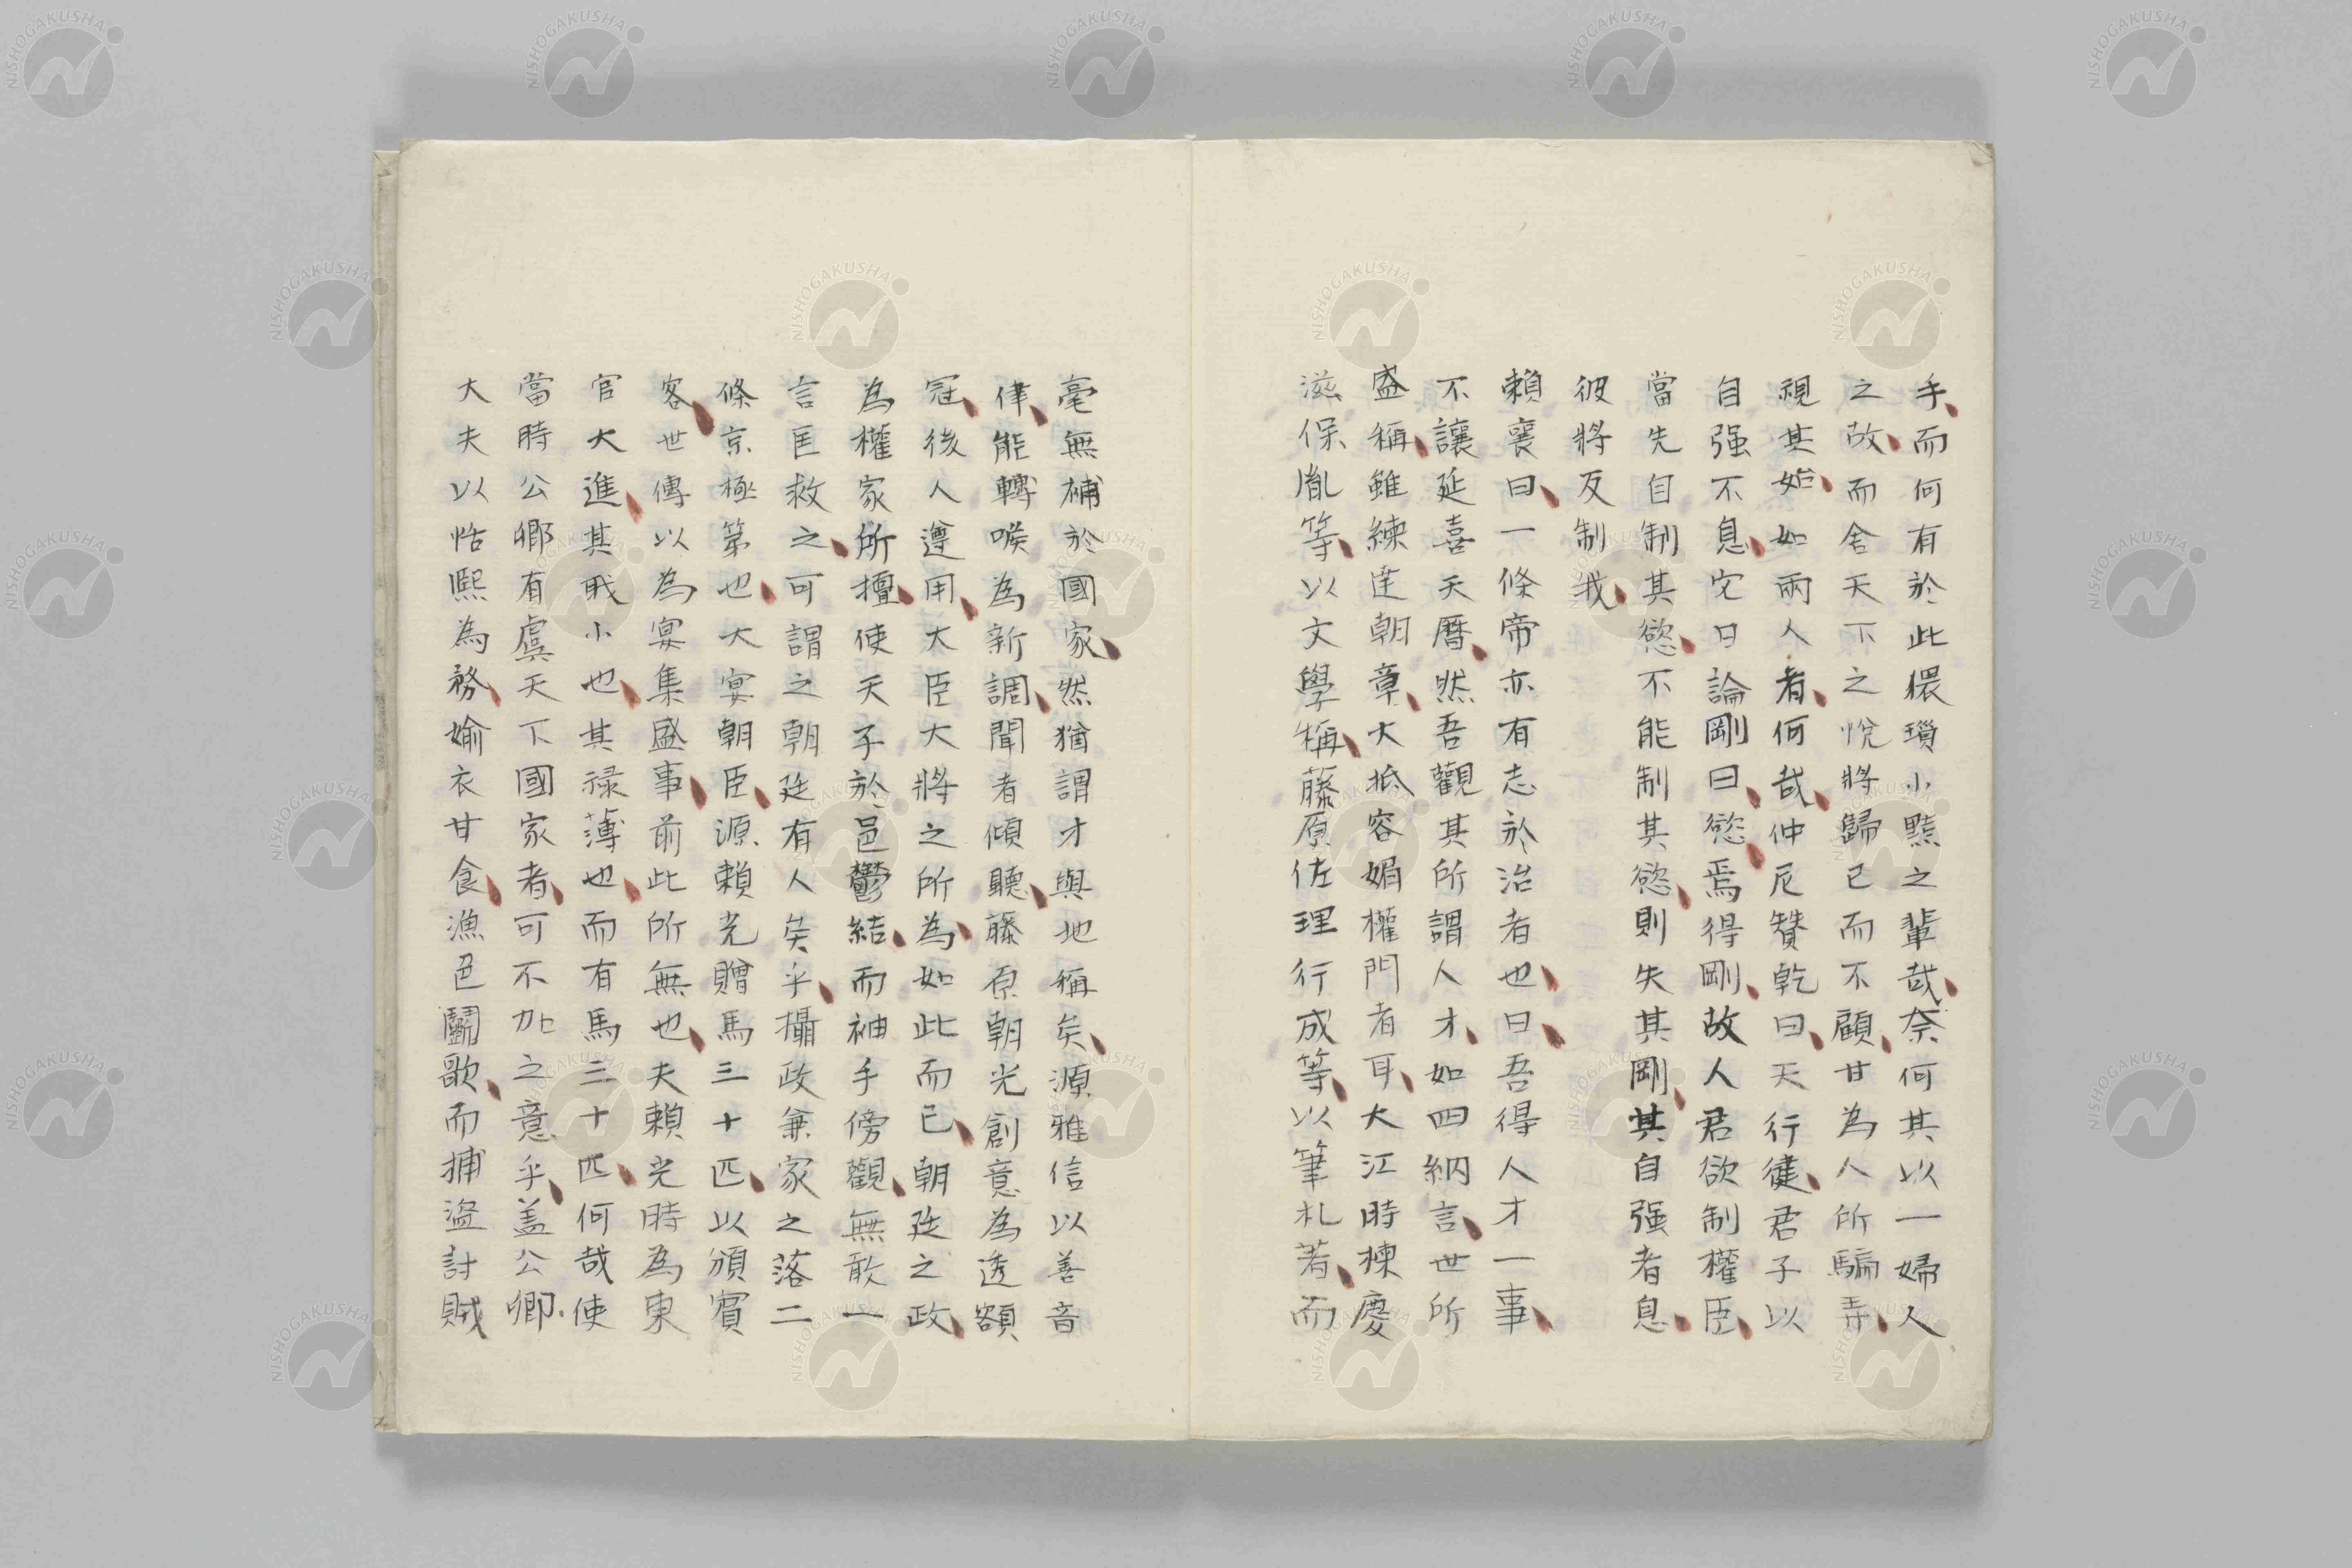 手而何有於此猥瑣小黠之輩哉奈何其以一婦人
之故而舍天下之悅將歸己而不顧甘為人所騙弄
視其始如兩人者何哉仲尼贊乾曰天行健君子以
自强不息它日論剛曰慾焉得剛故人君欲制權臣
當先自制其慾不能制其慾則失其剛其自强者息
彼將反制我
賴襄曰一條帝亦有志於治者也曰吾得人才一事
不讓延喜天曆然吾觀其所謂人才如四納言世所
盛稱雖練達朝章大抵容媚權門者耳大江時棟慶
滋保胤等以文學稱藤原佐理行成等以筆札著而
毫無補於國家然猶謂才與地稱矣源雅信以善音
律能轉喉為新調聞者傾聽藤原朝光創意為透額
冠後人遵用大臣大將之所為如此而已朝廷之政
為權家所擅使天子於邑鬱結而袖手傍觀無敢一
言匡救之可謂之朝廷有人矣乎攝政兼家之落二
條京極第也大宴朝臣源賴光贈馬三十匹以頒賓
客世傳以為宴集盛事前此所無也夫賴光時為東
官大進其戝小也其祿薄也而有馬三十匹何哉使
當時公卿有虞天下國家者可不加之意乎盖公卿
大夫以恬熙為務婾衣甘食漁色鬭歌而捕盜討賊